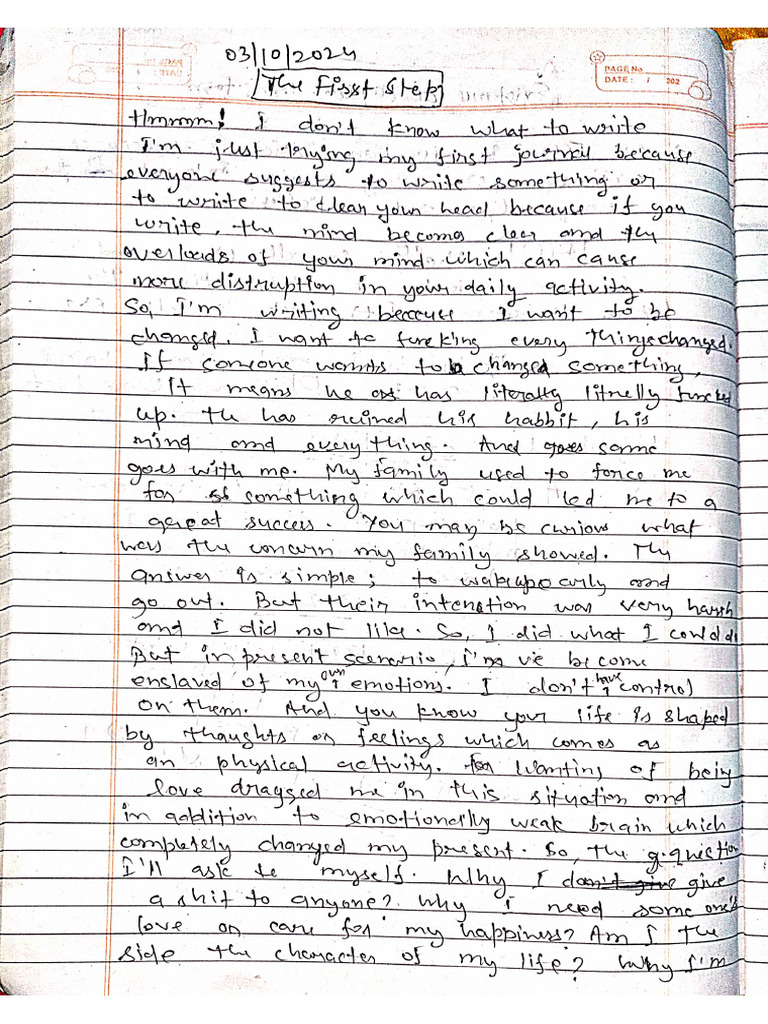 03/10/2024
PAGE No
DATE: / 202
The First Step
Hmmmm! I don't know what to write
I'm just trying my first journel because
everyone suggests to write something or
to write to clear your head because if you
write, the mind becomes clear and the
overloads of your mind which can cause
more distruption in your daily activity.
So, I'm writing because I want to be
changed. I want to fucking every things changed.
If someone wants to be changed something,
It means he has literally fucked
up. He has ruined his habbit, his
mind and everything. And same
goes with me. My family used to force me
for something which could led me to a
great success. You may be curious what
was the concern my family showed. The
answer is simple; to wakeup early and
go out. But their intenstion was very harsh
and I did not like. So, I did what I could do
But in present scenerio, I've become
enslaved of my own emotions. I don't have control
on them. And you know your life is shaped
by thoughts or feelings which comes as
an physical activity. Wanting of being
love dragged me in this situation and
in addition to emotionally weak brain which
completely changed my present. So, the question
I'll ask to myself. Why I give
a shit to anyone? Why I need some one's
love or care for my happiness? Am I the
side the character of my life? Why I'm